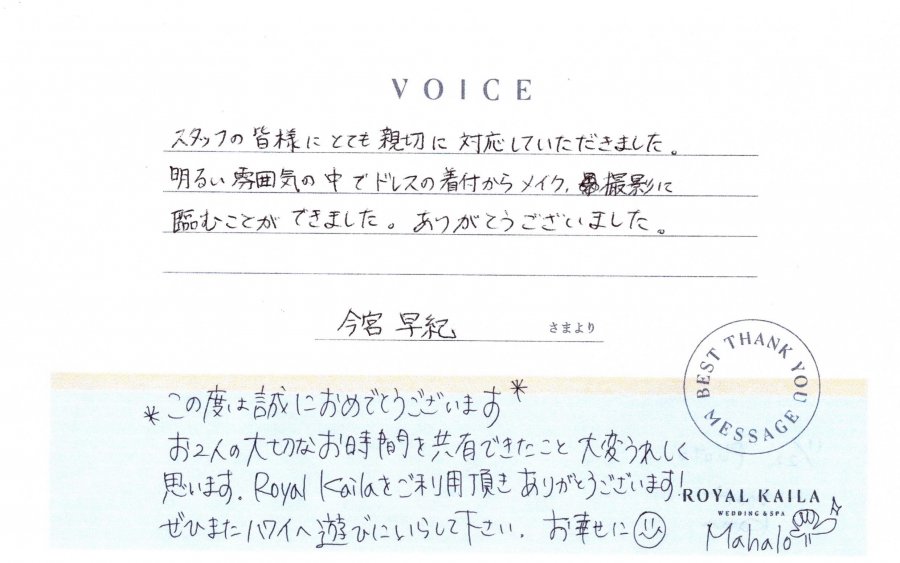 VOICE
スタッフの皆様にとても親切に対応していただきました。
明るい雰囲気の中でドレスの着付からメイク、撮影に
臨むことができました。ありがとうございました。
今宮 早紀 さまより
BEST THANK YOU MESSAGE
*この度は誠におめでとうございます*
お2人の大切なお時間を共有できたこと大変うれしく
思います。Royal Kailaをご利用頂きありがとうございます!
ぜひまたハワイへ遊びにいらして下さい。お幸せに
ROYAL KAILA
WEDDING & SPA
Mahalo